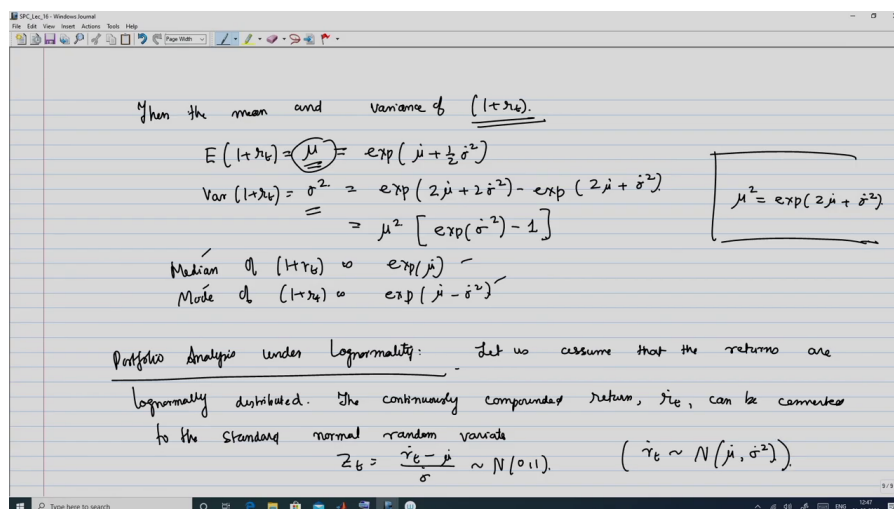 SPC_Lec_16 - Windows Journal
File Edit View Insert Actions Tools Help
Page Width
Then the mean and variance of (1+rₜ).
E(1+rₜ) = μ = exp(μ̇ + ½ σ̇²)
Var(1+rₜ) = σ² = exp(2μ̇ + 2σ̇²) - exp(2μ̇ + σ̇²)
= μ² [exp(σ̇²) - 1]
μ² = exp(2μ̇ + σ̇²)
Median of (1+rₜ) is exp(μ̇)
Mode of (1+rₜ) is exp(μ̇ - σ̇²)
Portfolio Analysis under Lognormality: Let us assume that the returns are
lognormally distributed. The continuously compounded return, ṙₜ, can be converted
to the standard normal random variate
Zₜ = (ṙₜ - μ̇)/σ̇ ~ N(0,1). (ṙₜ ~ N(μ̇, σ̇²)).
9/9
Type here to search
ENG
12:47